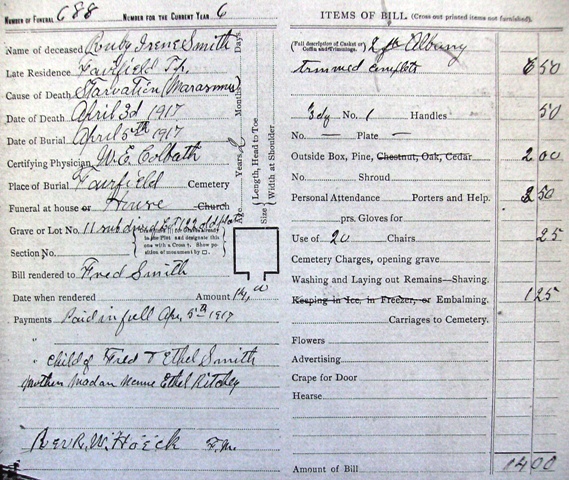 NUMBER OF FUNERAL 688 NUMBER FOR THE CURRENT YEAR 6
Name of deceased Ruby Irene Smith
Late Residence Fairfield Tp.
Cause of Death Starvation (Marasmus)
Date of Death April 3d 1917
Date of Burial April 5th 1917
Certifying Physician W. E. Colbath
Place of Burial Fairfield Cemetery
Funeral at house or House Church
Grave or Lot No. 11 subdivided
in the Plot and designate this
one with a Cross †. Show po-
sition of monument by □.
Section No.
Bill rendered to Fred Smith
Date when rendered Amount 14.00
Payments Paid in full Apr 5th 1917
" child of Fred & Ethel Smith
mothers madan Ethel Ritchey
Rev R. W. Hoeck F.M.
Age Years, 2 Months Days.
Size { Length, Head to Toe
Width at Shoulder
ITEMS OF BILL (Cross out printed items not furnished.)
(Full description of Casket or Coffin and Trimmings. } 2 ft Albany
trimmed complete 6 50
3dy No. 1 Handles 50
No. — Plate —
Outside Box, Pine, Chestnut, Oak, Cedar 2 00
No. Shroud
Personal Attendance Porters and Help. 3 50
prs. Gloves for
Use of 20 Chairs 25
Cemetery Charges, opening grave
Washing and Laying out Remains—Shaving.
Keeping in Ice, in Freezer, or Embalming. 1 25
Carriages to Cemetery.
Flowers
Advertising
Crape for Door
Hearse
Amount of Bill 14 00